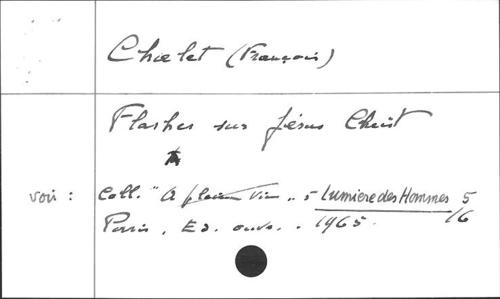 Chalet (François)
Flashes sur Jésus Christ
voir : Coll. "A pleine vie" . 5 Lumière des Hommes 5/6
Paris, Ed. ouvr. . 1965.